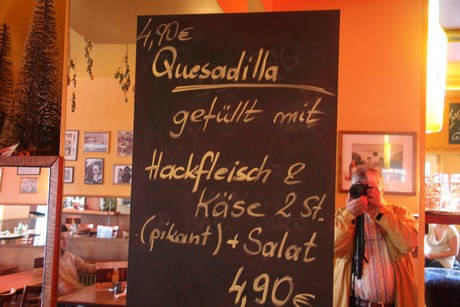 4,90€
Quesadilla
gefüllt mit
Hackfleisch &
Käse 2 St.
(pikant) + Salat
4,90€